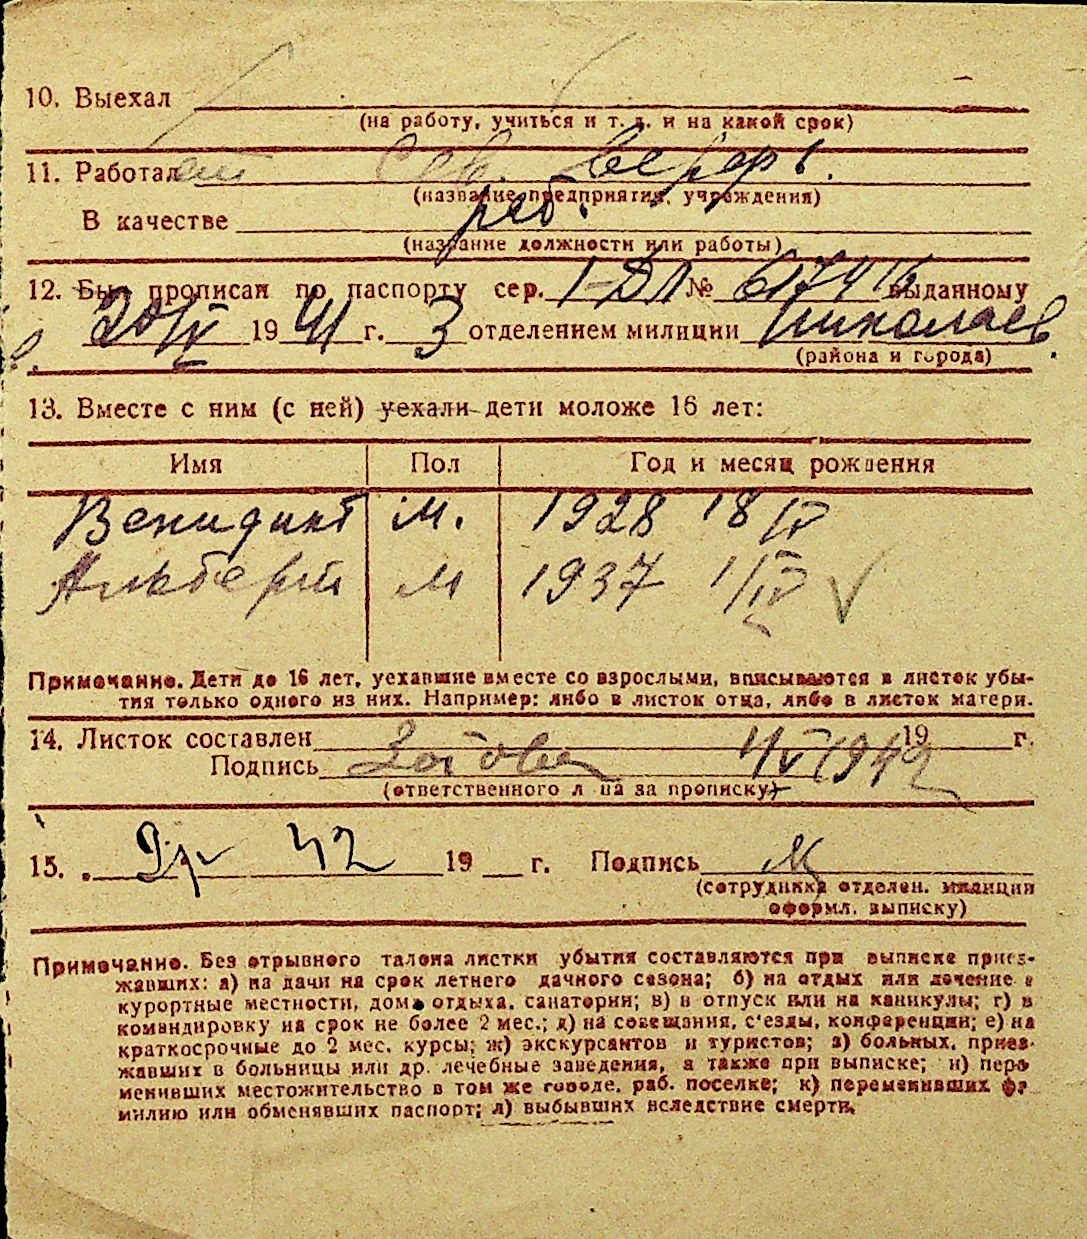 10. Выехал
(на работу, учиться и т. д. и на какой срок)
11. Работает Сев. верфь.
(название предприятия, учреждения)
В качестве раб.
(название должности или работы)
12. Был прописан по паспорту сер. I-ДЛ № 617416 выданному
20/IV 1941 г. 3 отделением милиции Николаев.
(района и города)
13. Вместе с ним (с ней) уехали дети моложе 16 лет:
Имя Пол Год и месяц рождения
Венидикт м. 1928 18/IV
Альберт м 1937 1/IV
Примечание. Дети до 16 лет, уехавшие вместе со взрослыми, вписываются в листок убы-
тия только одного из них. Например: либо в листок отца, либо в листок матери.
14. Листок составлен 4/V 1942 19 г.
Подпись Зотова
(ответственного лица за прописку)
15. 42 19 г. Подпись
(сотрудника отделен. милиции
оформл. выписку)
Примечание. Без отрывного талона листки убытия составляются при выписке приез-
жавших: а) на дачи на срок летнего дачного сезона; б) на отдых или лечение в
курортные местности, дома отдыха, санатории; в) в отпуск или на каникулы; г) в
командировку на срок не более 2 мес.; д) на совещания, с'езды, конференции; е) на
краткосрочные до 2 мес. курсы; ж) экскурсантов и туристов; з) больных, приез-
жавших в больницы или др. лечебные заведения, а также при выписке; и) пере
менивших местожительство в том же городе, раб. поселке; к) переменивших фа
милию или обменявших паспорт; л) выбывших вследствие смерти.